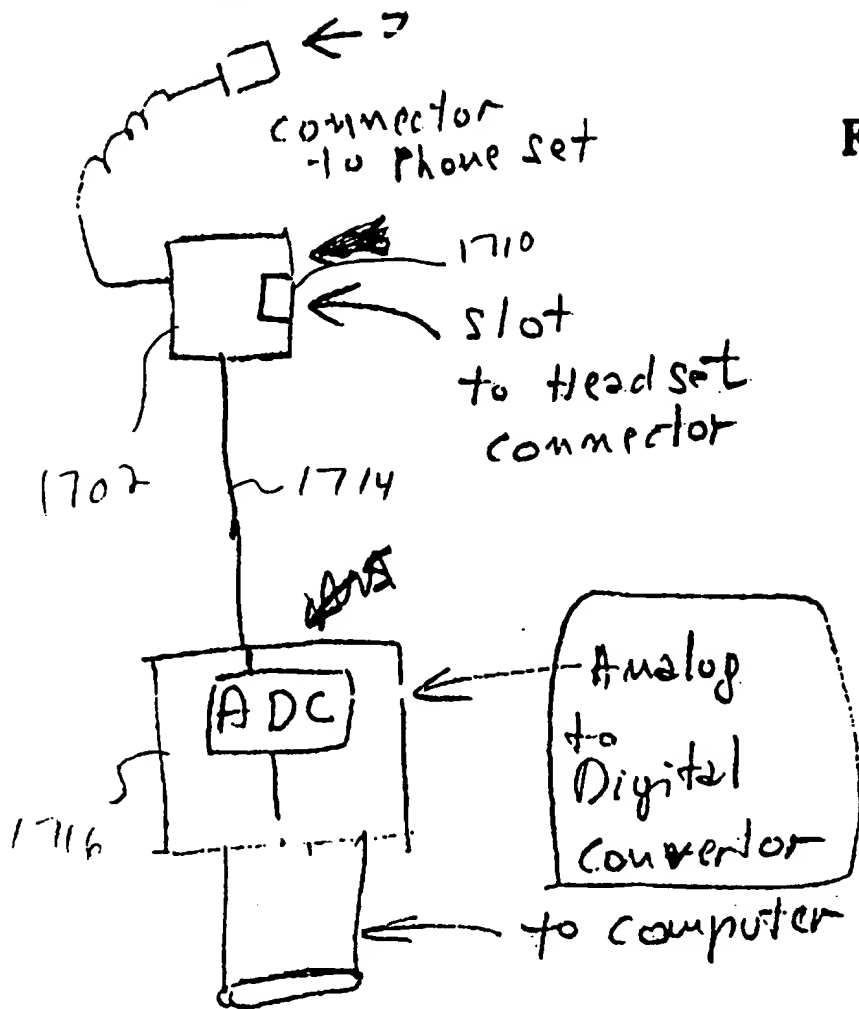 connector
to phone set
F
1710
slot
to Headset
connector
1702
1714
ADC
Analog
to
Digital
Convertor
1716
to computer